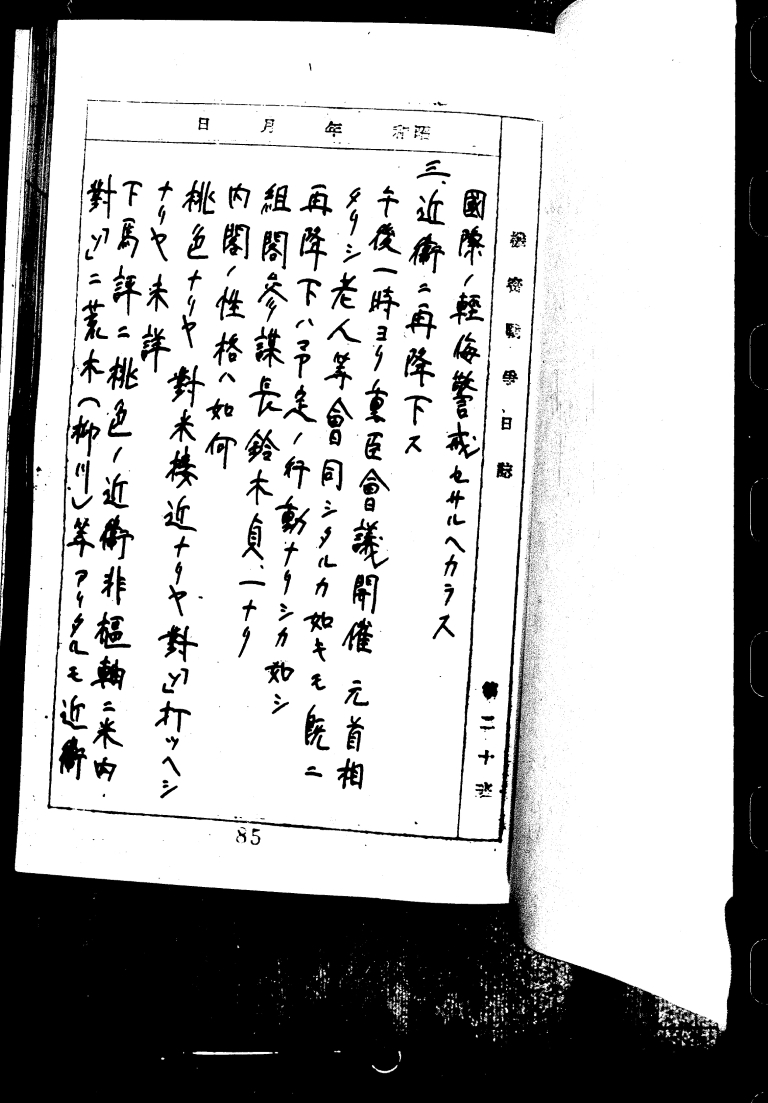 機密戰爭日誌 第二十
昭和 年 月 日
國際ノ輕侮警戒セサルヘカラス
三、近衛ニ再降下ス
午後一時ヨリ重臣會議開催 元首相
タリシ老人等會同シタルカ如キモ既ニ
再降下ハ予定ノ行動ナリシカ如シ
組閣參謀長鈴木貞一ナリ
内閣ノ性格ハ如何
桃色ナリヤ 對米接近ナリヤ 對「ソ」打ツヘシ
ナリヤ未詳
下馬評ニ桃色ノ近衛非樞軸ニ米内、
對「ソ」ニ荒木(柳川)等アリタルモ近衛
85